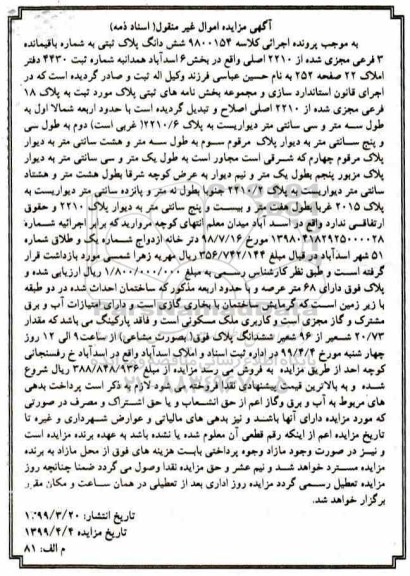 آگهی مزایده اموال غیر منقول( اسناد ذمه)
به موجب پرونده اجرائی کلاسه ۹۸۰۰۱۵۴ شش دانگ پلاک ثبتی به شماره باقیمانده
۳ فرعی مجزی شده از ۲۲۱۰ اصلی واقع در بخش ۶ اسدآباد همدانبه شماره ثبت ۴۴۳۰ دفتر
املاک ۲۲ صفحه ۲۵۲ به نام حسین عباسی فرزند وکیل اله ثبت و صادر گردیده است که در
اجرای قانون استاندارد سازی و مجموعه بخش نامه های ثبتی پلاک مورد ثبت به پلاک ۱۸
فرعی مجزی شده از ۲۲۱۰ اصلی اصلاح و تبدیل گردیده است با حدود اربعه شمالا اول به
طول سه متر و سی سانتی متر دیواریست به پلاک ۲۲۱۰/۶( غربی است) دوم به طول سی
و پنج سانتی متر به دیوار پلاک مرقوم سوم به طول سه متر و هشت سانتی متر به دیوار
پلاک مرقوم چهارم که شرقی است مجاور است به طول یک متر و سی سانتی متر به دیوار
پلاک مزبور پنجم بطول یک متر و نیم دیوار به عرض کوچه شرقا بطول هشت متر و هشتاد
سانتی متر دیواریست به پلاک ۲۲۱۰/۲ جنوبا بطول نه متر و پانزده سانتی متر دیواریست به
پلاک ۲۰۱۵ غربا بطول هفت متر و بیست و پنج سانتی متر به دیوار پلاک ۲۲۱۰ و حقوق
ارتفاقی ندارد واقع در اسد آباد میدان معلم انتهای کوچه مروارید که برابر اجرائیه شماره
۱۳۹۸۰۴۱۸۲۹۲۵۰۰۰۰۲۸ مورخ ۹۸/۷/۱۶ دتر خانه ازدواج شماره یک و طلاق شماره
۵۱ شهر اسدآباد در قبال مبلغ ۳۵۶/۷۴۲/۱۴۴ ریال مهریه زهرا شمسی مورد بازداشت قرار
گرفته است و طبق نظر کارشناس رسمی به مبلغ ۱/۸۰۰/۰۰۰/۰۰۰ ریال ارزیابی شده و
پلاک فوق دارای ۶۸ متر عرصه و با حدود اربعه مذکور که ساختمان احداث شده در دو طبقه
با زیر زمین است که گرمایش ساختمان با بخاری گازی است و دارای امتیازات آب و برق
مشترک و گاز مجزی است و کاربری ملک مسکونی است و فاقد پارکینگ می باشد که مقدار
۲۰/۷۳ شعیر از ۹۶ شعیر ششدانگ پلاک فوق( بصورت مشاعی) از ساعت ۹ الی ۱۲ روز
چهار شنبه مورخ ۹۹/۴/۴ در اداره ثبت اسناد و املاک اسدآباد واقع در اسدآباد خ رفسنجانی
کوچه احد از طریق مزایده به فروش می رسد مزایده از مبلغ ۳۸۸/۸۴۸/۹۳۶ ریال شروع
شده و به بالاترین قیمت پیشنهادی نقدا فروخته می شود لازم به ذکر است پرداخت بدهی
های مربوط به آب و برق وگاز اعم از حق انشعاب و یا حق اشتراک و مصرف در صورتی
که مورد مزایده دارای آنها باشد و نیز بدهی های مالیاتی و عوارض شهرداری و غیره تا
تاریخ مزایده اعم از اینکه رقم قطعی آن معلوم شده یا نشده باشد به عهده برنده مزایده است
و نیز در صورت وجود مازاد وجوه پرداختی بابت هزینه های فوق از محل مازاد به برنده
مزایده مسترد خواهد شد و نیم عشر و حق مزایده نقدا وصول می گردد ضمنا چنانچه روز
مزایده تعطیل رسمی گردد مزایده روز اداری بعد از تعطیلی در همان ساعت و مکان مقرر
برگزار خواهد شد.
تاریخ انتشار: ۱۳۹۹/۳/۲۰
تاریخ مزایده ۱۳۹۹/۴/۴
م الف: ۸۱